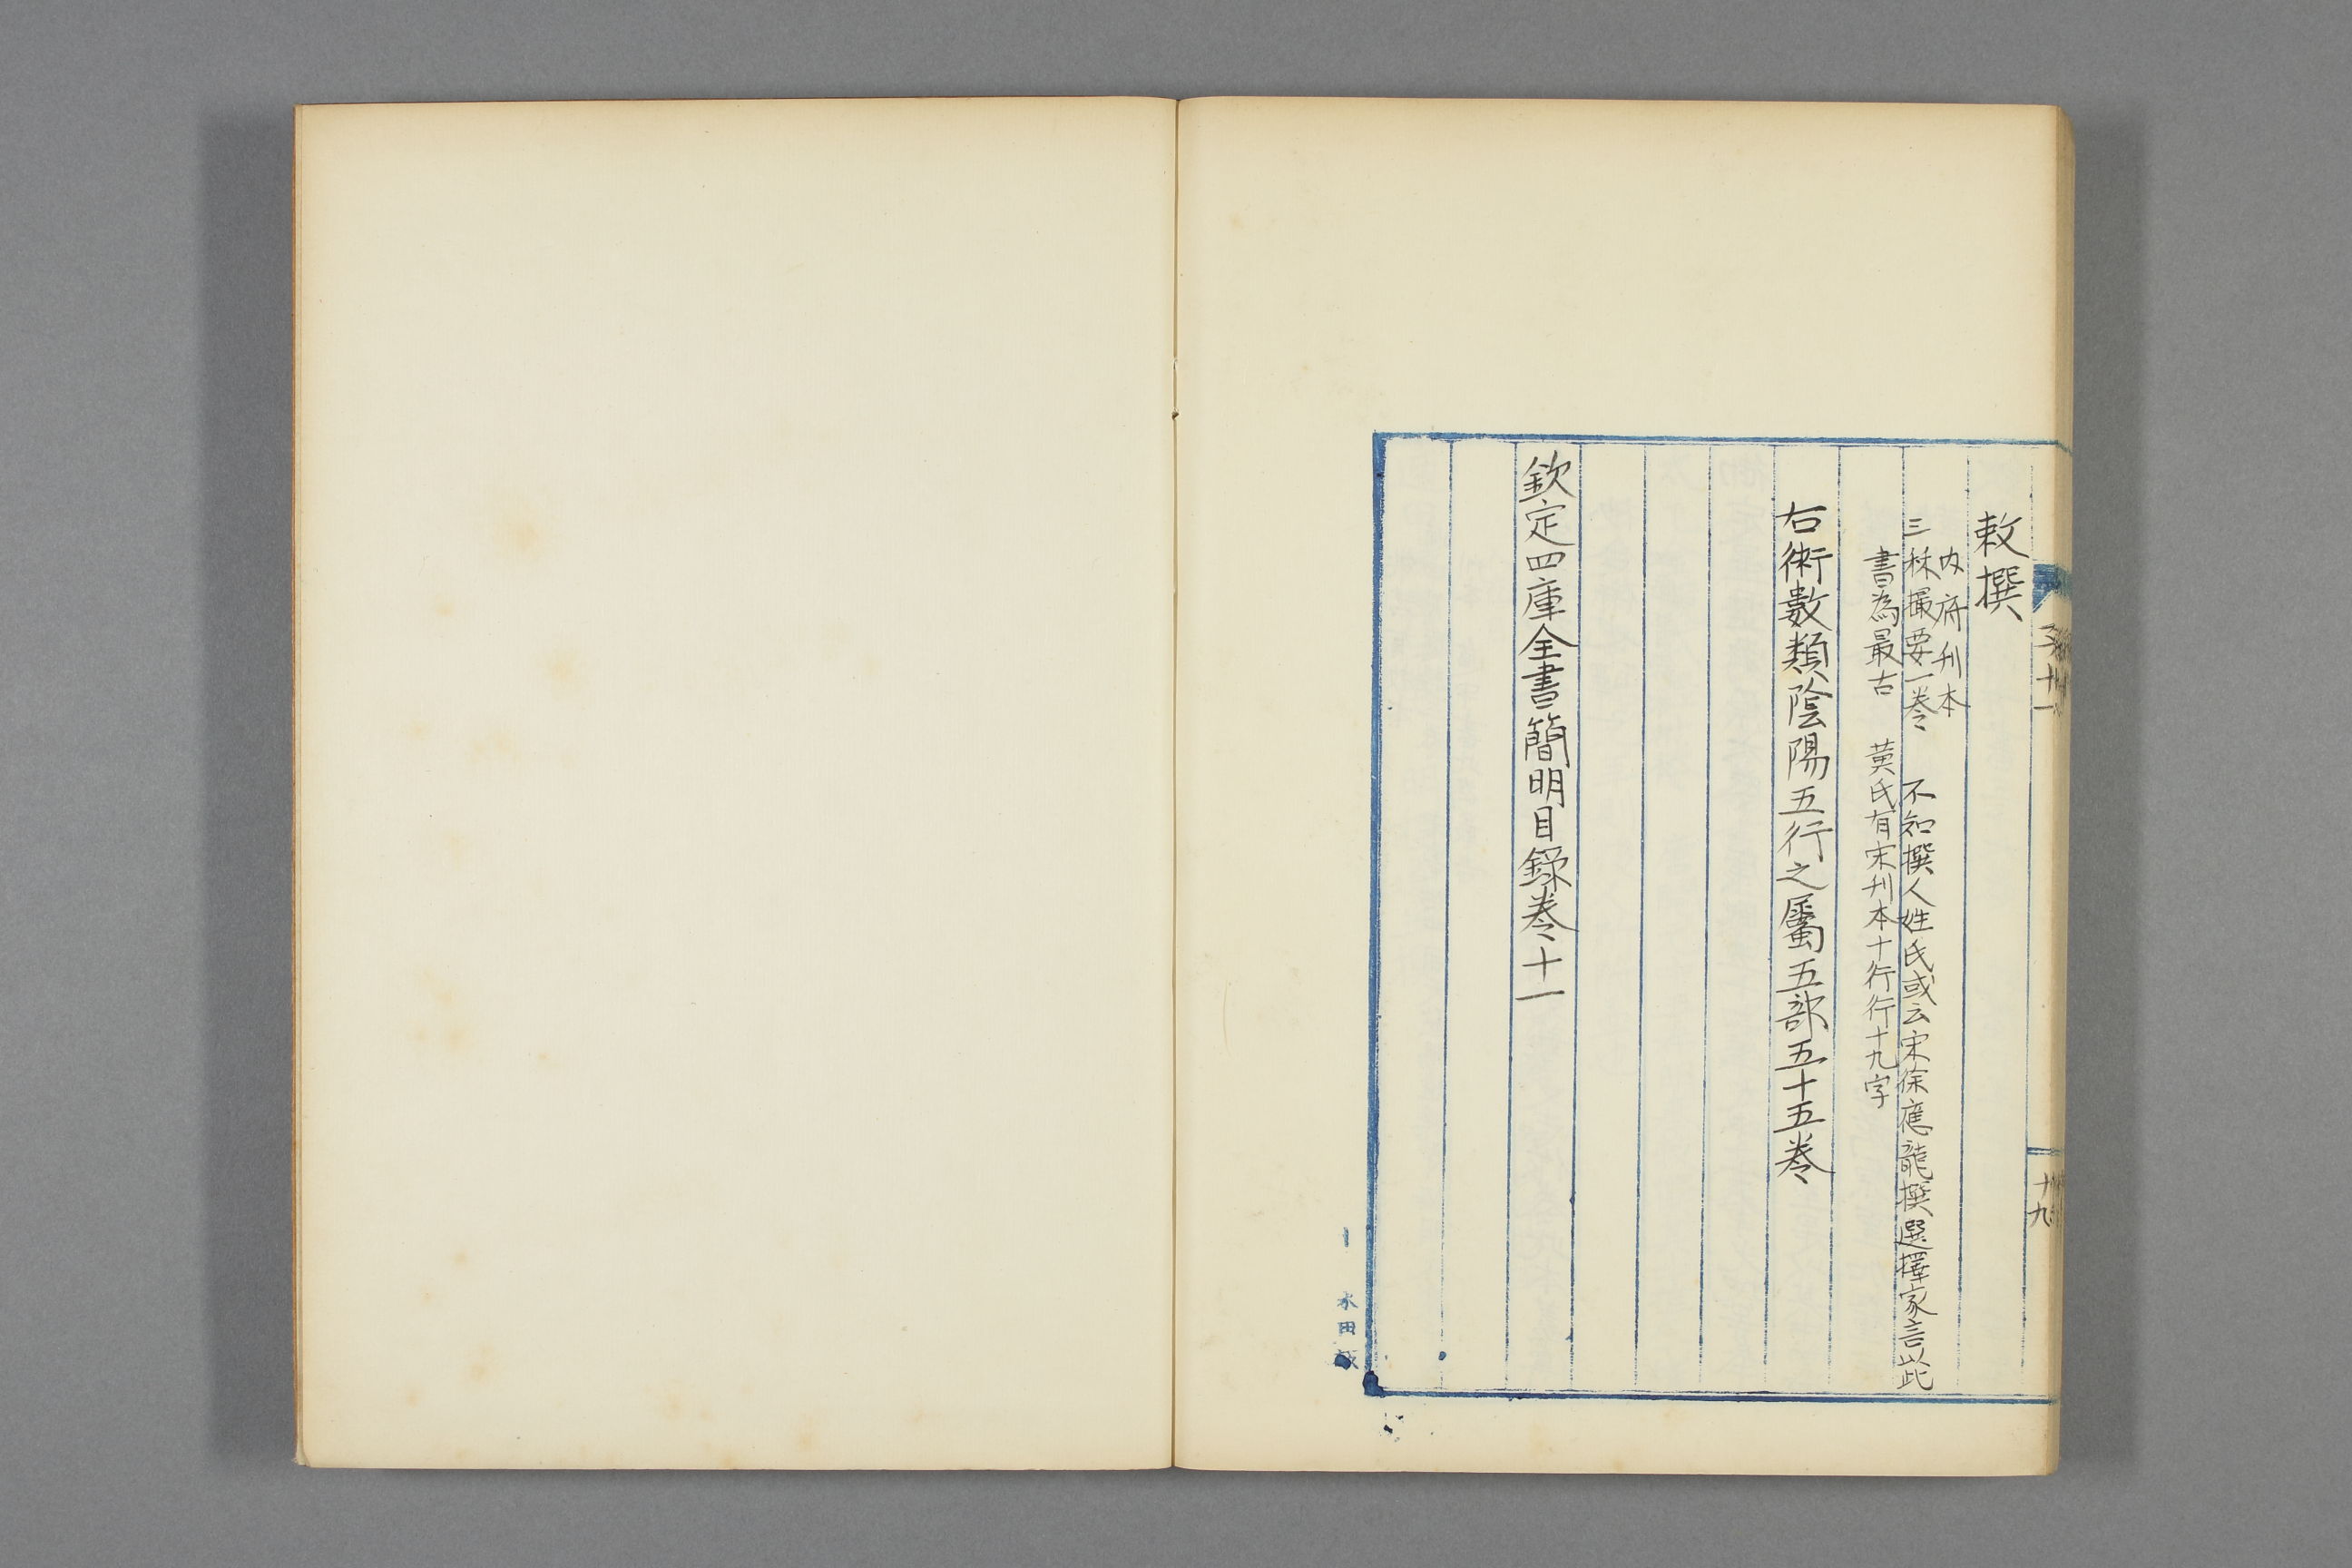 敕撰
内府刊本
三秝撮要一卷　不知撰人姓氏或云宋徐應龍撰選擇家言以此
書為最古　莫氏有宋刊本十行行十九字
右術數類陰陽五行之屬五部五十五卷
欽定四庫全書簡明目錄卷十一
子十一
十九